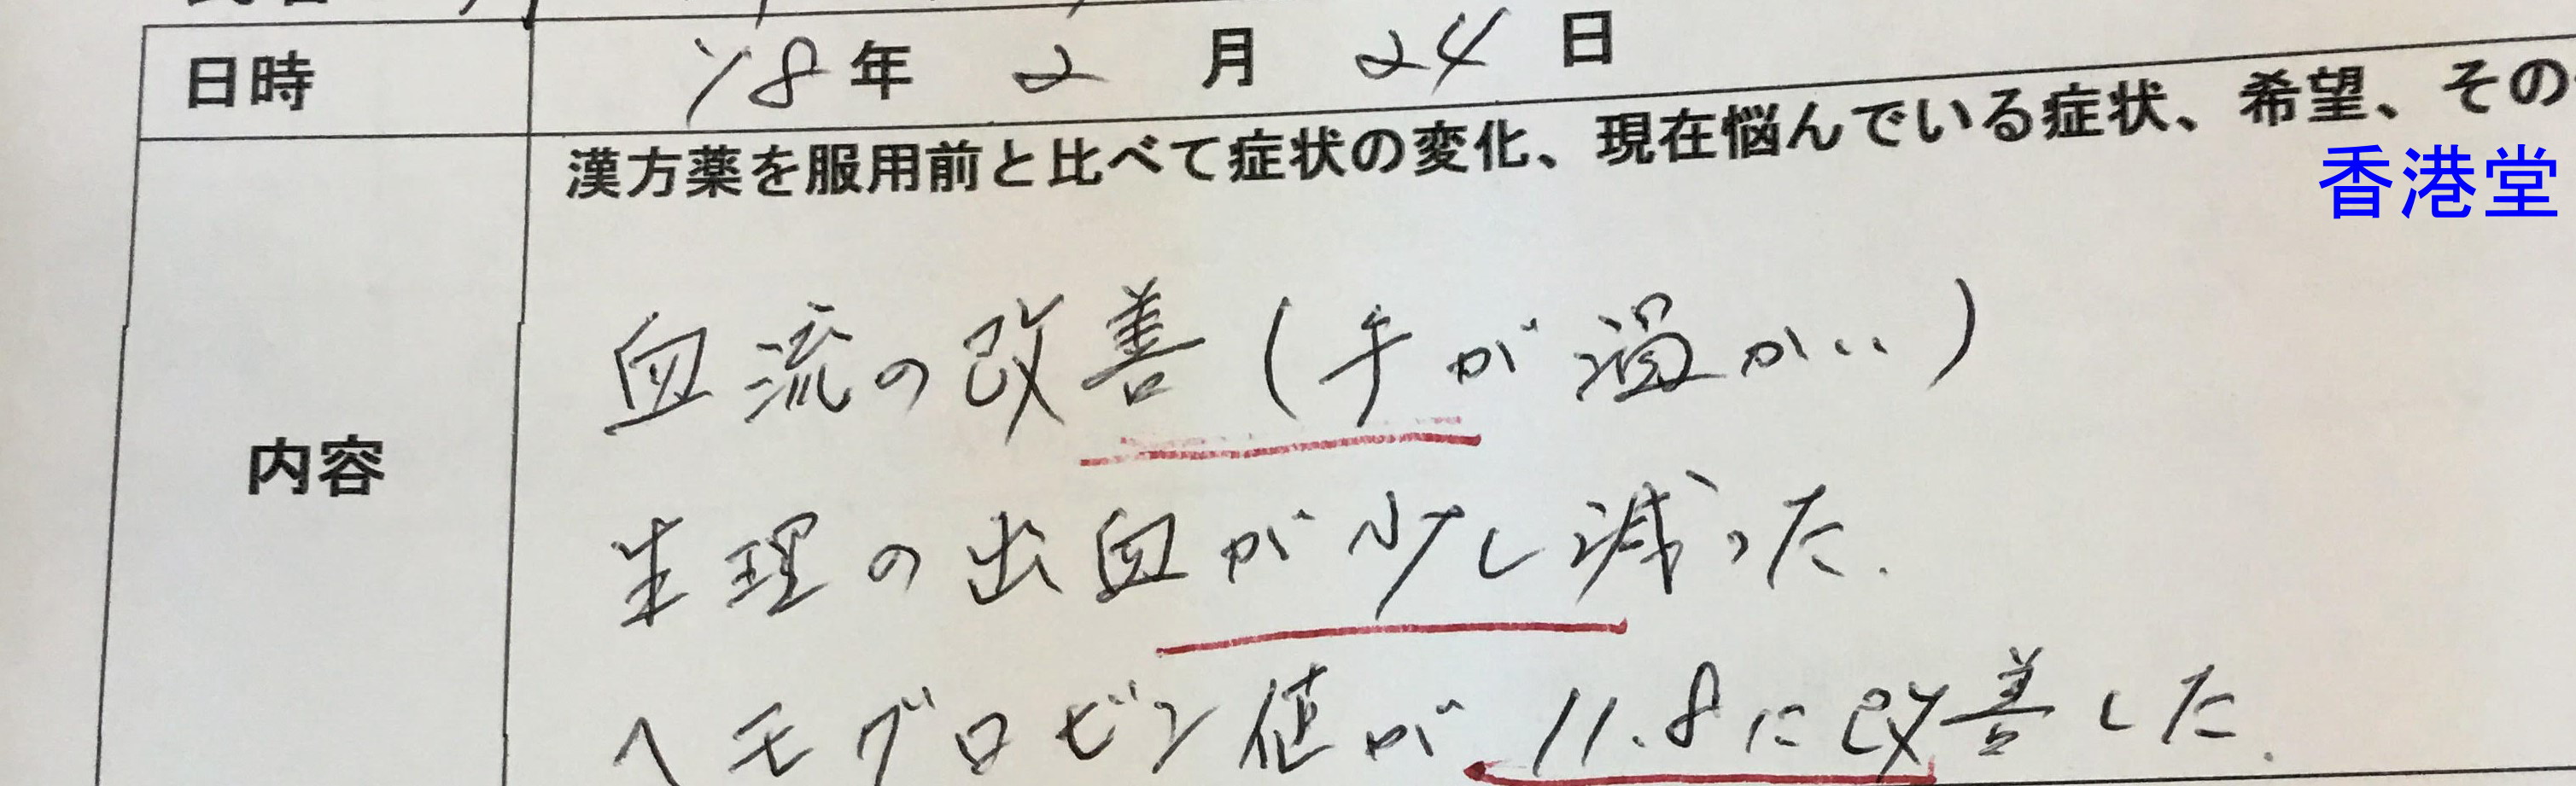 日時 '18年 2 月 24 日
漢方薬を服用前と比べて症状の変化、現在悩んでいる症状、希望、その
香港堂
内容
血流の改善(手が温か..)
生理の出血が少し減った.
ヘモグロビン値が 11.8に改善した.